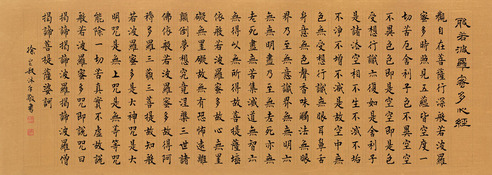 般若波羅蜜多心經
觀自在菩薩行深般若波羅
蜜多時照見五蘊皆空度一
切苦厄舍利子色不異空空
不異色色即是空空即是色
受想行識亦復如是舍利子
是諸法空相不生不滅不垢
不淨不增不減是故空中無
色無受想行識無眼耳鼻舌
身意無色聲香味觸法無眼
界乃至無意識界無無明亦
無無明盡乃至無老死亦無
老死盡無苦集滅道無智亦
無得以無所得故菩提薩埵
依般若波羅蜜多故心無罣
礙無罣礙故無有恐怖遠離
顛倒夢想究竟涅槃三世諸
佛依般若波羅蜜多故得阿
耨多羅三藐三菩提故知般
若波羅蜜多是大神咒是大
明咒是無上咒是無等等咒
能除一切苦真實不虛故說
般若波羅蜜多咒即說咒曰
揭諦揭諦波羅揭諦波羅僧
揭諦菩提薩婆訶
沐手敬書